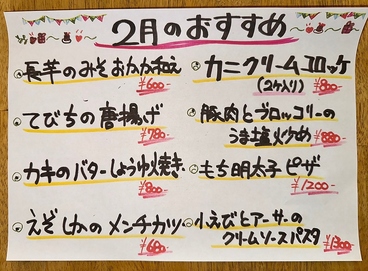 2月のおすすめ
長芋のみそおかか和え
¥600-
てびちの唐揚げ
¥780-
カキのバターしょうゆ焼き
¥800-
えぞしかのメンチカツ
¥680-
カニクリームコロッケ
(2ケ入り) ¥800-
豚肉とブロッコリーの
うま塩炒め ¥880-
もち明太子ピザ
¥1200-
小えびとアーサーの
クリームソースパスタ ¥1300-